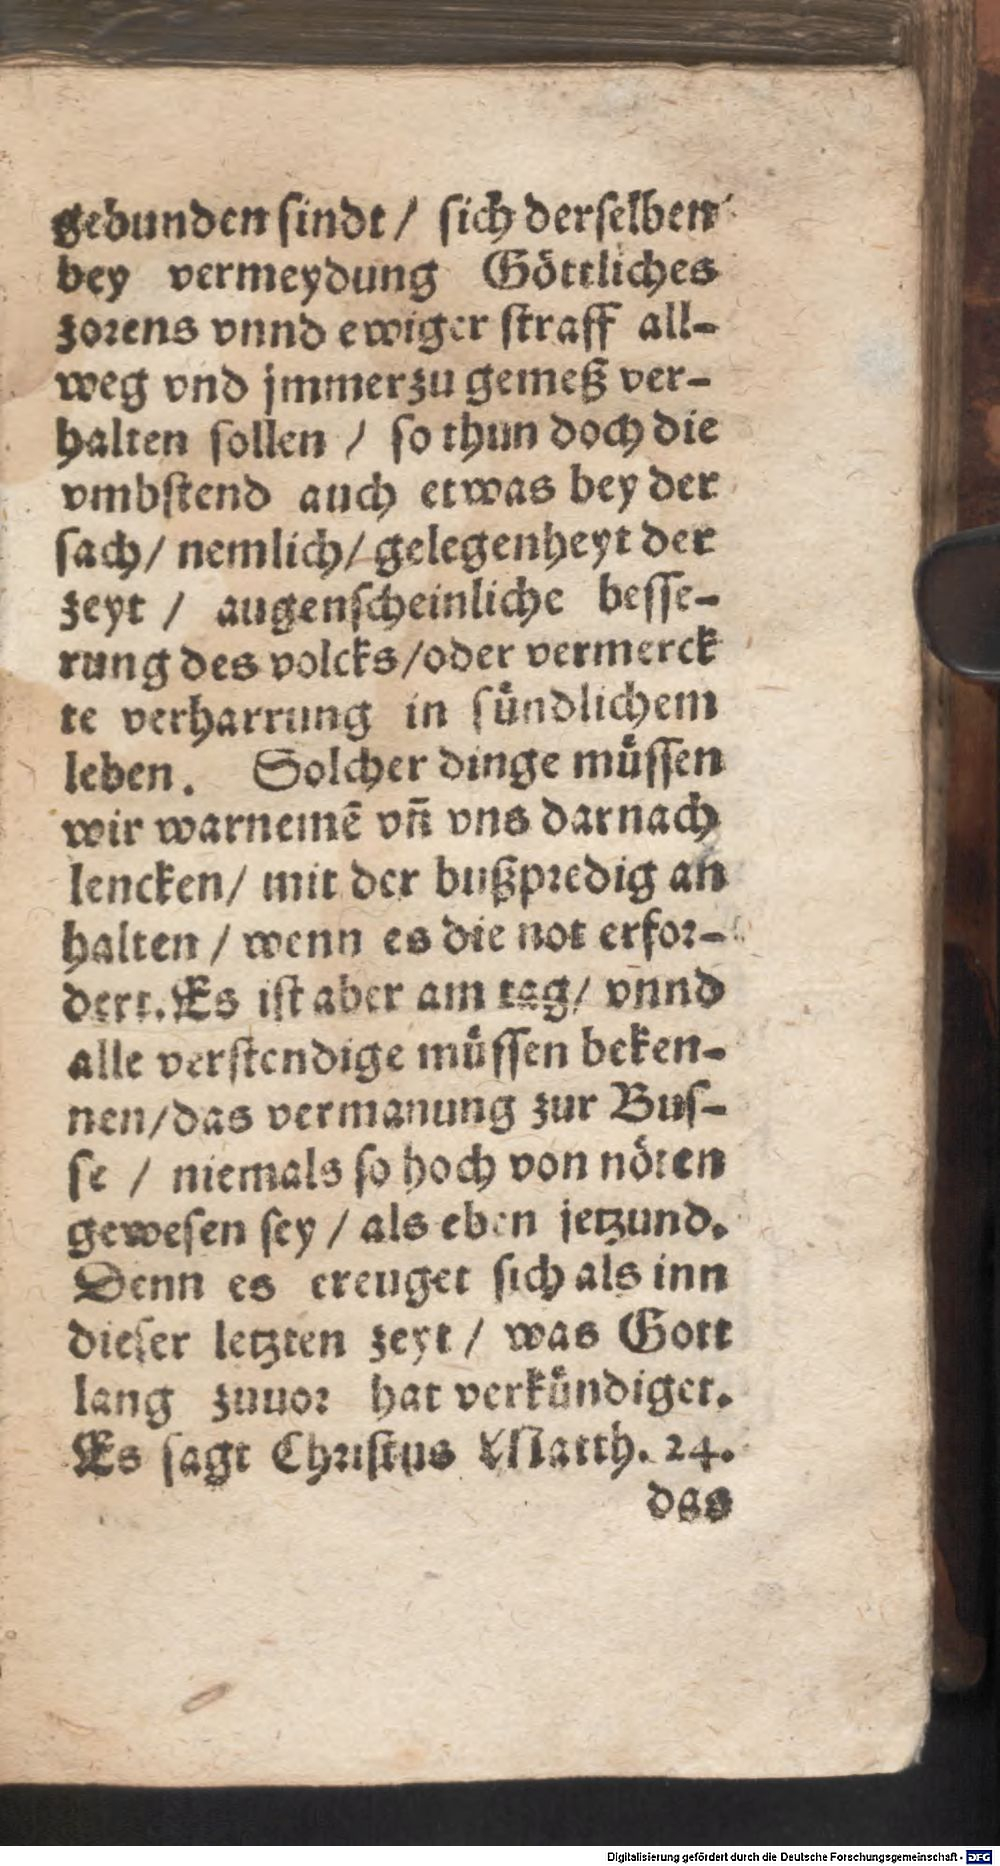 gebunden sindt / sich derselben
bey vermeydung Göttliches
zorens vnnd ewiger straff all-
weg vnd jmmerzu gemeß ver-
halten sollen / so thun doch die
vmbstend auch etwas bey der
sach / nemlich / gelegenheyt der
zeyt / augenscheinliche besse-
rung des volcks / oder vermerck
te verharrung in sündlichem
leben. Solcher dinge müssen
wir warnemē vñ vns darnach
lencken / mit der bußpredig an
halten / wenn es die not erfor-
dert. Es ist aber am tag / vnnd
alle verstendige müssen beken-
nen / das vermanung zur Bus-
se / niemals so hoch von nöten
gewesen sey / als eben jetzund.
Denn es ereuget sich als inn
dieser letzten zeyt / was Gott
lang zuuor hat verkündiget.
Es sagt Christus Matth. 24.
das
Digitalisierung gefördert durch die Deutsche Forschungsgemeinschaft - DFG